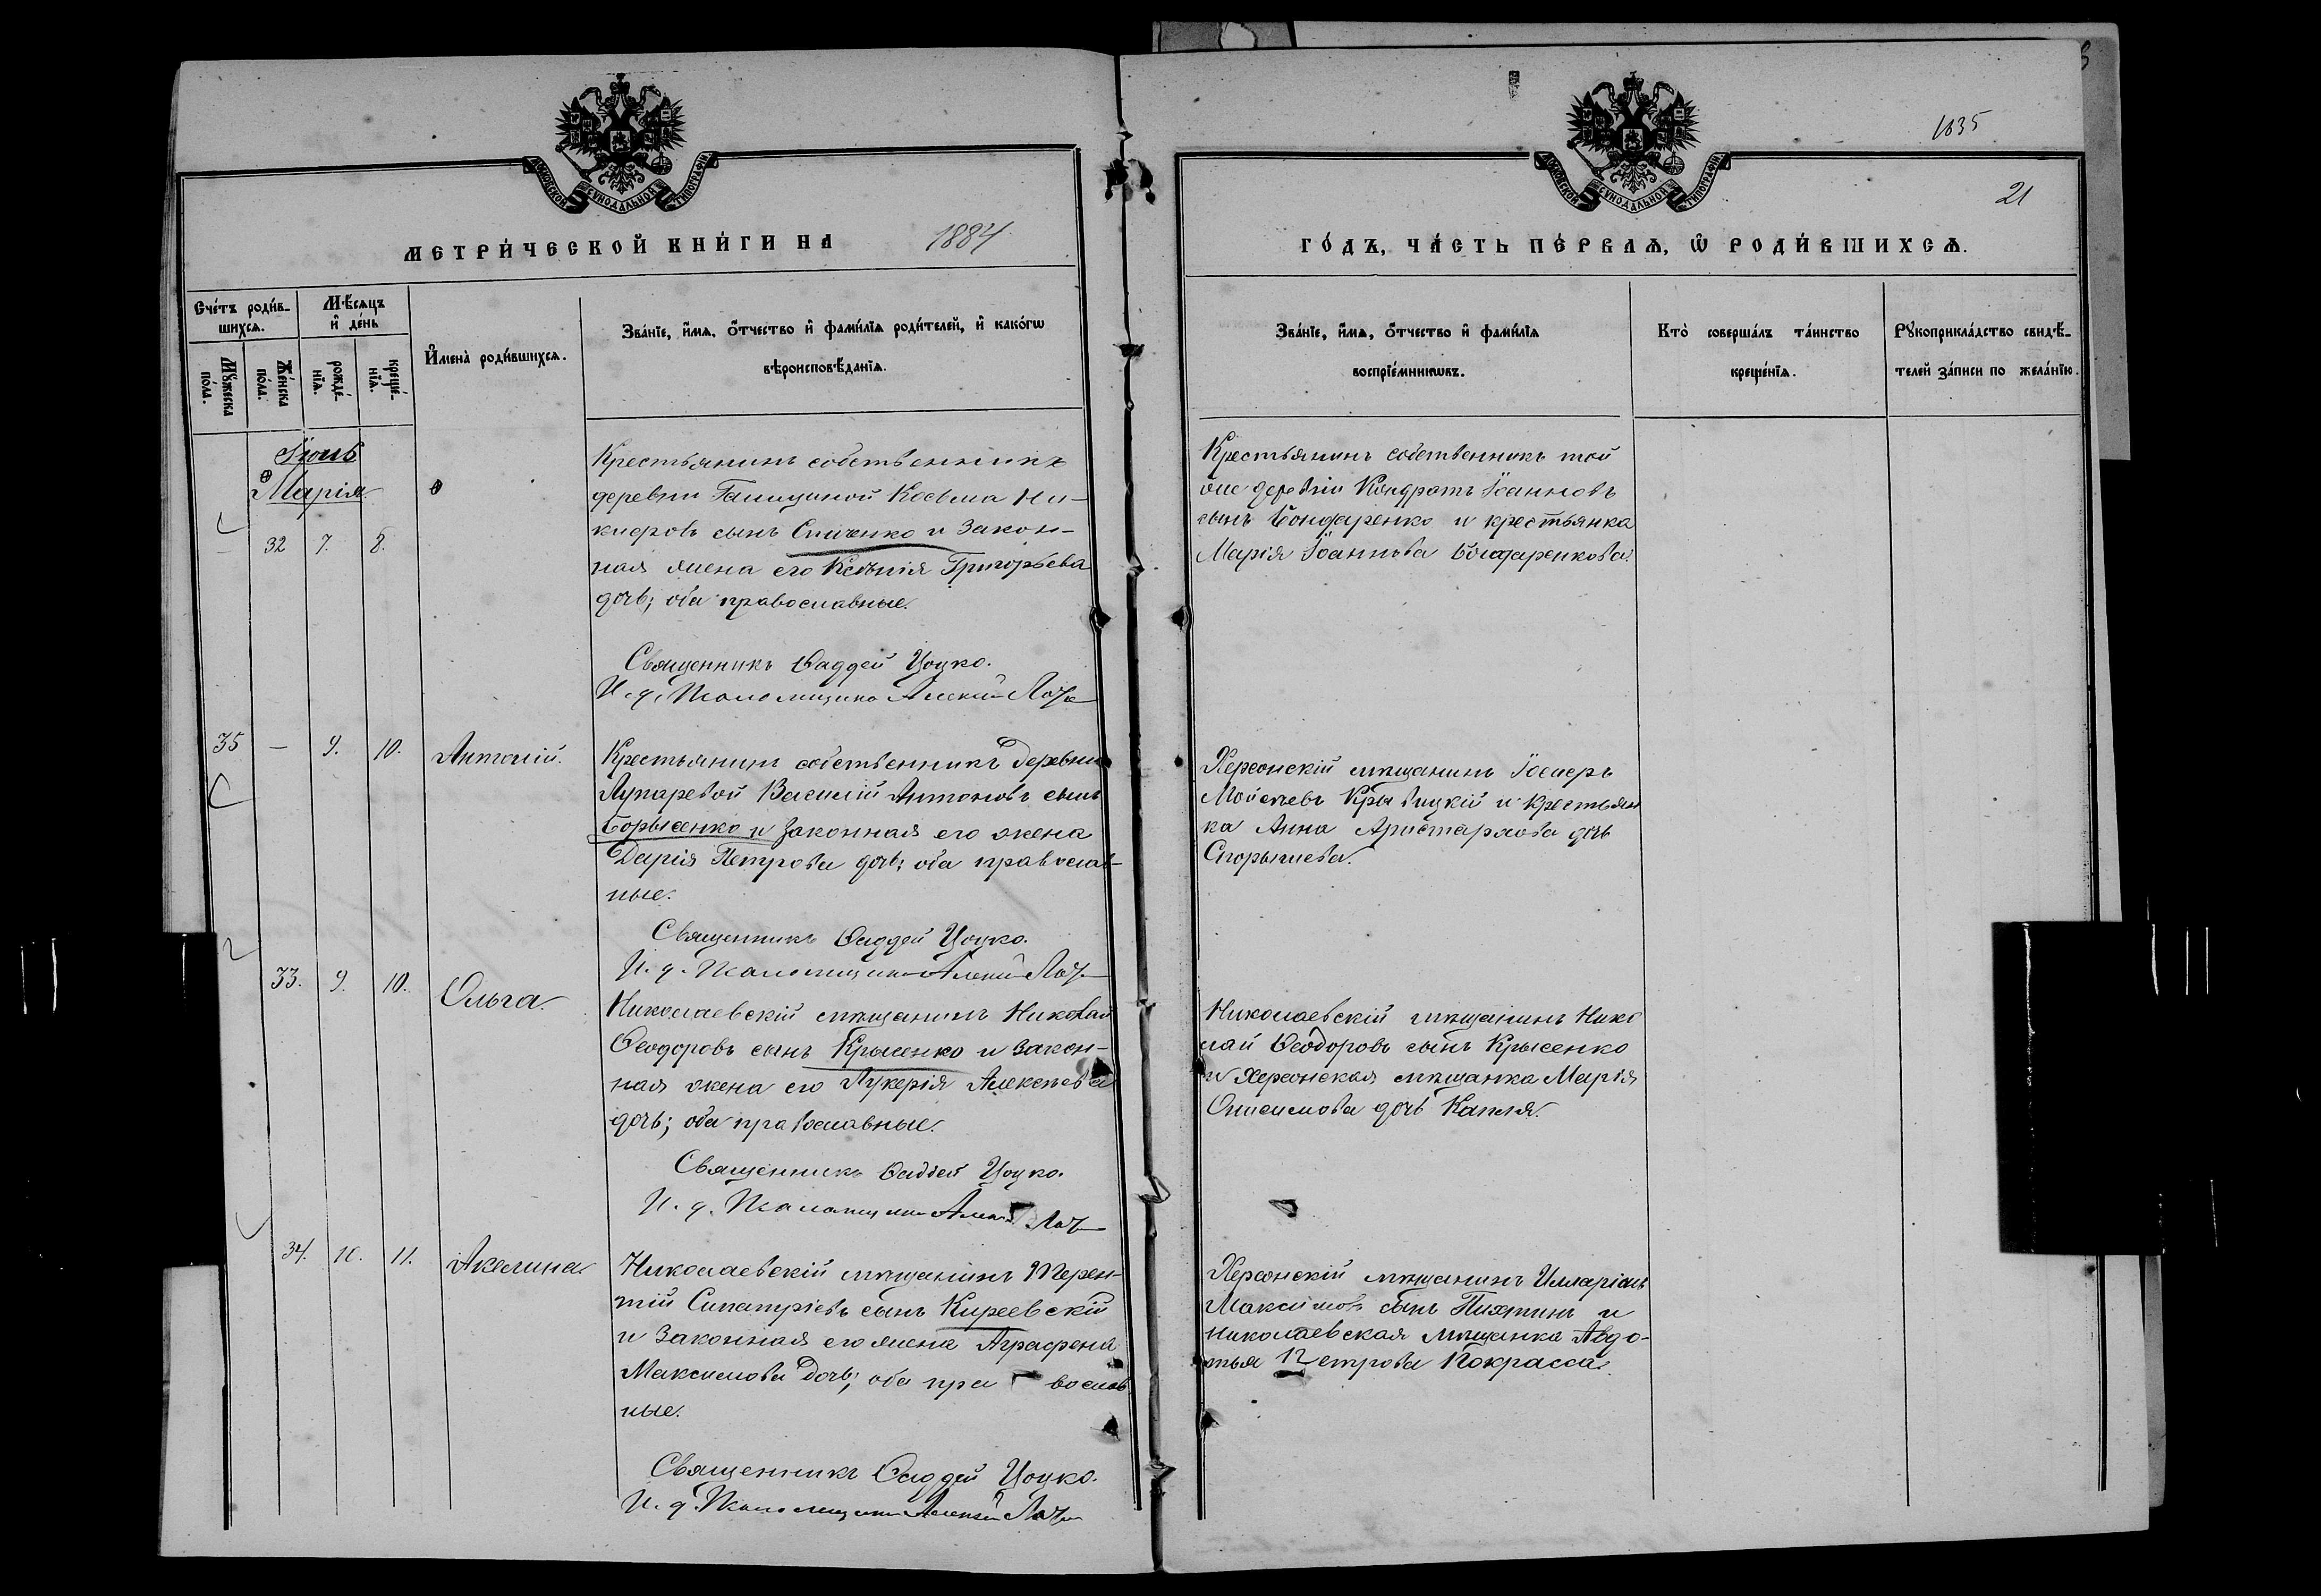 1635
21
МОСКОВСКОЙ СѴНОДАЛЬНОЙ ТИПОГРАФІИ
МОСКОВСКОЙ СѴНОДАЛЬНОЙ ТИПОГРАФІИ
МЕТРИ́ЧЕСКОЙ КНИ́ГИ НА 1884
ГО́ДЪ, ЧА́СТЬ ПЕ́РВАѦ, Ѿ РОДИ́ВШИХСѦ.
Сче́тъ роди́в-
шихсѧ.
Мꙋ́жеска
по́ла.
Же́нска
по́ла.
Мѣ́сѧцъ
и҆ де́нь
рожде́-
нїѧ.
креще́-
нїѧ.
И҆мена̀ роди́вшихсѧ.
Зва́нїе, и҆́мѧ, ѻ҆́тчество и҆ фами́лїѧ роди́телей, и҆ како́гѡ
вѣроисповѣ́данїѧ.
Зва́нїе, и҆́мѧ, ѻ҆́тчество и҆ фами́лїѧ
воспрїе́мникѡвъ.
Кто̀ соверша́лъ та́инство
креще́нїѧ.
Рꙋкоприкла́дство свидѣ́-
телей за́писи по жела́нїю.
Марія.
32 7. 8.
Крестьянинъ собственникъ
деревни Косьма Ни-
кифоровъ сынъ и Закон-
ная жена его Ксенія Григорьева
дочь; оба православные.
Священникъ Ѳаддей Цоцко.
И. д. Псаломщика Алексій
Крестьянинъ собственникъ той
же деревни Кондратъ Іоанновъ
сынъ Бондаренко и крестьянка
Марія Іоаннова Бондаренкова.
35 — 9. 10. Антоній.
Крестьянинъ собственникъ деревни
Лупаревой Василій Антоновъ сынъ
Борысенко и Законная его жена
Дарія Петрова дочь; оба православ-
ные.
Священникъ Ѳаддей Цоцко.
И. д. Псаломщика Алексій
Херсонскій мѣщанинъ
Моисеевъ и крестьян
ка Анна Аристархова дочь
33. 9. 10. Ольга.
Николаевскій мѣщанинъ Николай
Ѳеодоровъ сынъ Крысенко и закон-
ная жена его Лукерія Алексѣева
дочь; оба православные.
Священникъ Ѳаддей Цоцко.
И. д. Псаломщика Алексій
Николаевскій мѣщанинъ Нико
лай Ѳеодоровъ сынъ Крысенко
и Херсонская мѣщанка Марія
Онисимова дочь Капля.
34. 10. 11. Акелина
Николаевскій мѣщанинъ Терен-
тій Сипатріевъ сынъ Киреевскій
и Законная его жена Аграфена
Максимова дочь; оба пра вослав
ные.
Священникъ Ѳаддей Цоцко.
И. д. Псаломщика Алексій
Херсонскій мѣщанинъ Илларіонъ
Максимовъ сынъ и
николаевская мѣщанка Авдо-
тья Петрова Покрасса.